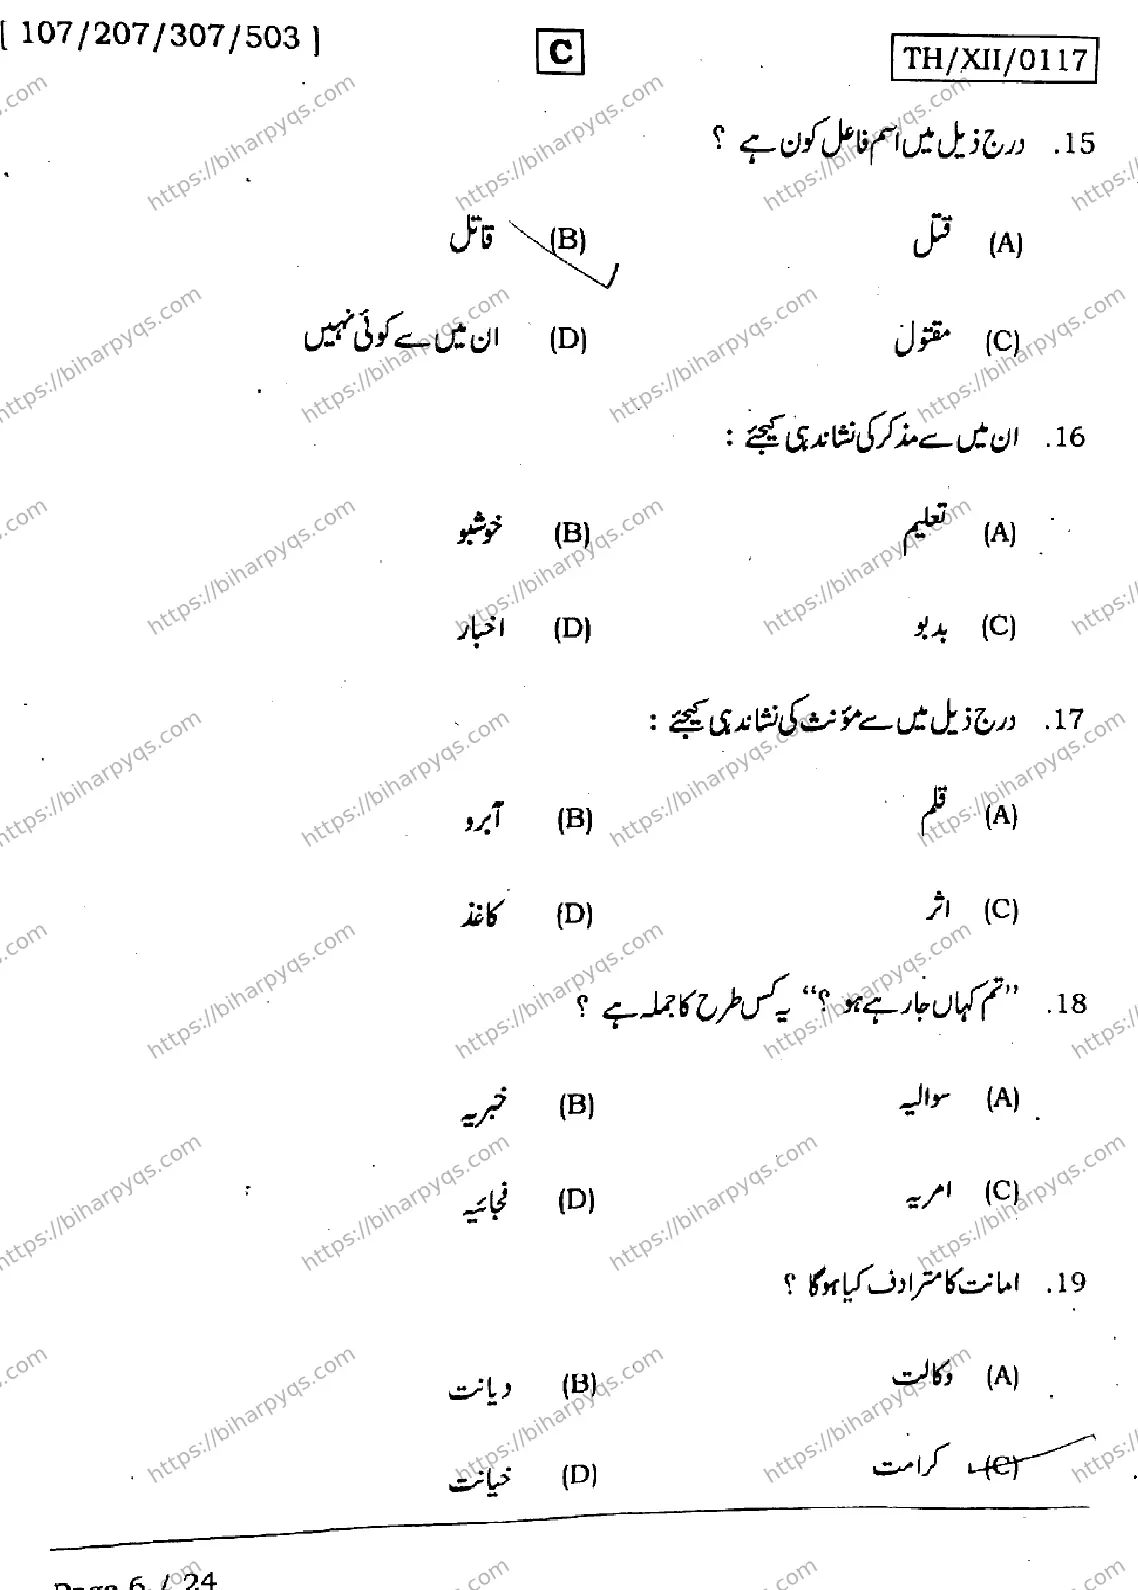 [ 107/207/307/503 ]
C
TH/XII/0117
15. درج ذیل میں اسم فاعل کون ہے ؟
(A) قتل (B) قاتل
(C) مقتول (D) ان میں سے کوئی نہیں
16. ان میں سے مذکر کی نشاندہی کیجئے :
(A) تعلیم (B) خوشبو
(C) بدبو (D) اخبار
17. درج ذیل میں سے مؤنث کی نشاندہی کیجئے :
(A) قلم (B) آبرو
(C) اثر (D) کاغذ
18. ”تم کہاں جا رہے ہو ؟“ یہ کس طرح کا جملہ ہے ؟
(A) سوالیہ (B) خبریہ
(C) امریہ (D) فجائیہ
19. امانت کا مترادف کیا ہوگا ؟
(A) وکالت (B) دیانت
(C) کرامت (D) خیانت
Page 6 / 24
https://biharpyqs.com